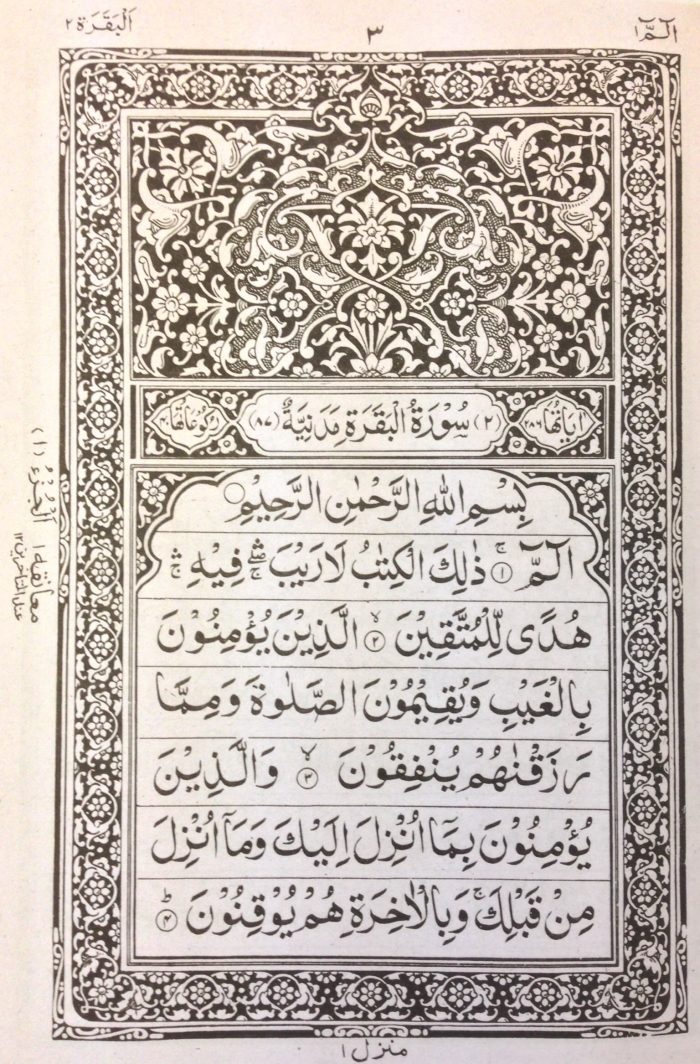 الٓمّٓ ١
٣
اَلْبَقَرَة ٢
اٰيَاتُهَا ٢٨٦
(٢) سُوْرَةُ الْبَقَرَةِ مَدَنِيَّةٌ (٨٧)
رُكُوْعَاتُهَا ٤٠
بِسْمِ اللّٰهِ الرَّحْمٰنِ الرَّحِيْمِ
الٓمّٓ ۚ ١ ذٰلِكَ الْكِتٰبُ لَا رَيْبَ ۛۖۚ فِيْهِ ۛۚ
هُدًى لِّلْمُتَّقِيْنَ ۙ ٢ الَّذِيْنَ يُؤْمِنُوْنَ
بِالْغَيْبِ وَيُقِيْمُوْنَ الصَّلٰوةَ وَمِمَّا
رَزَقْنٰهُمْ يُنْفِقُوْنَ ۙ ٣ وَالَّذِيْنَ
يُؤْمِنُوْنَ بِمَآ اُنْزِلَ اِلَيْكَ وَمَآ اُنْزِلَ
مِنْ قَبْلِكَ ۚ وَبِالْاٰخِرَةِ هُمْ يُوْقِنُوْنَ ؕ ٤
اَلْجُزْءُ (١)
معانقة ١
عند المتأخرين ١٢
منزل ١